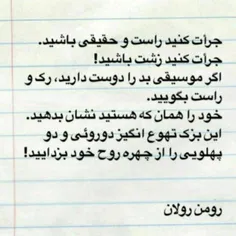 جرات کنید راست و حقیقی باشید.
جرات کنید زشت باشید!
اگر موسیقی بد را دوست دارید، رک و
راست بگویید.
خود را همان که هستید نشان بدهید.
این بزک تهوع انگیز دوروئی و دو
پهلویی را از چهره روح خود بزدایید!
رومن رولان